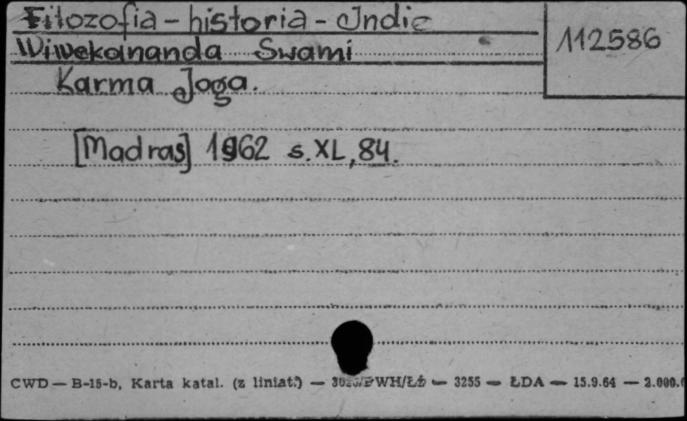 Filozofia - historia - Indie
112586
Wiwekananda Swami
Karma Joga.
[Madras] 1962 s. XL, 84.
CWD — B-15-b, Karta katal. (z liniat.) — WH/Łż — 3255 — ŁDA — 15.9.64 — 2.000.0